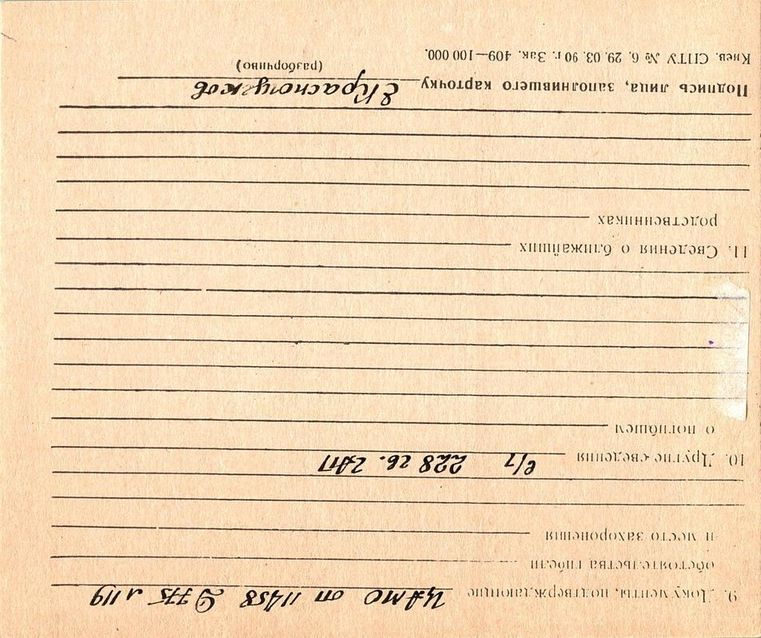 9. Документы, подтверждающие ЦАМО оп 11458 Д 775 л 119
обстоятельства гибели
и место захоронения
10. Другие сведения 228 гв.
о погибшем
11. Сведения о ближайших
родственниках
Подпись лица, заполнившего карточку
(разборчиво)
Киев. СПТУ № 6. 29. 03. 90 г. Зак. 409—100 000.